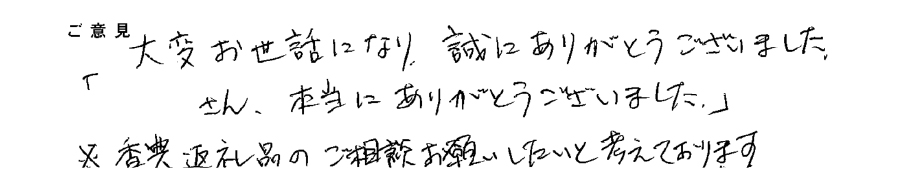 ご意見 大変お世話になり、誠にありがとうございました。
「 さん、本当にありがとうございました。」
※香典返礼品のご相談お願いしたいと考えております